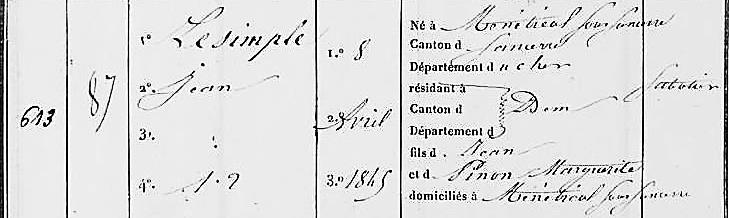 613
87
1º Lesimple
2º Jean
3º
4º 1. 2
1.º 8
2.º Avril
3.º 1845
Né à Ménétréol sous Sancerre
Canton d Sancerre
Département du cher
résidant à
Canton d Dem
Département d
fils d. Jean
et d Pinon Marguerite
domiciliés à Ménétréol sous Sancerre
Sabotier